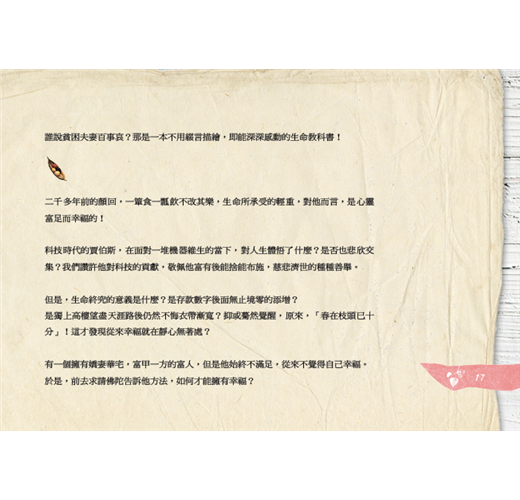 誰說貧困夫妻百事哀？那是一本不用繼言描繪，即能深深感動的生命教科書！
二千多年前的顏回，一簞食一瓢飲不改其樂，生命所承受的輕重，對他而言，是心靈
富足而幸福的！
科技時代的賈伯斯，在面對一堆機器維生的當下，對人生體悟了什麼？是否也悲欣交
集？我們讚許他對科技的貢獻，敬佩他富有後能捨能布施，慈悲濟世的種種善舉。
但是，生命終究的意義是什麼？是存款數字後面無止境零的添增？
是獨上高樓望盡天涯路後仍然不悔衣帶漸寬？抑或驀然覺醒，原來，「春在枝頭已十
分」！這才發現從來幸福就在靜心無著處？
有一個擁有嬌妻華宅，富甲一方的富人，但是他始終不滿足，從來不覺得自己幸福。
於是，前去求請佛陀告訴他方法，如何才能擁有幸福？
17